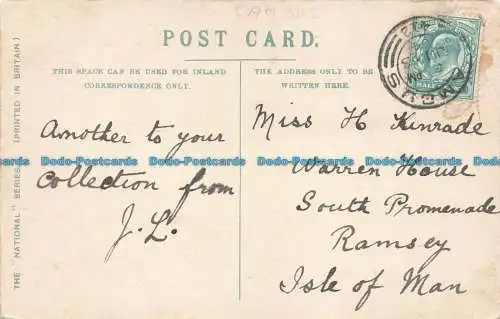 CAMBUS
POST CARD.
THIS SPACE CAN BE USED FOR INLAND
CORRESPONDENCE ONLY.
THE ADDRESS ONLY TO BE
WRITTEN HERE.
THE "NATIONAL" SERIES
(PRINTED IN BRITAIN)
Another to your
collection from
J.L.
Miss H Kinrade
Warren House
South Promenade
Ramsey
Isle of Man
Dodo-Postcards Dodo-Postcards Dodo-Postcards Dodo-Postcards Dodo-Postcards